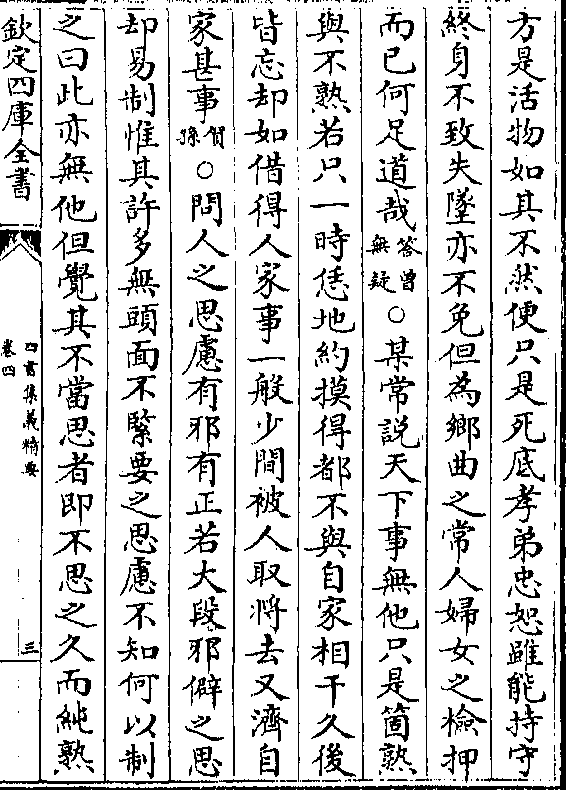 方是活物如其不然便只是死底孝弟忠恕雖能持守
終身不致失墜亦不免但為鄉曲之常人婦女之檢押
而已何足道哉答曾無疑○某常說天下事無他只是箇熟
與不熟若只一時恁地約摸得都不與自家相干久後
皆忘却如借得人家事一般少間被人取將去又濟自
家甚事賀孫○問人之思慮有邪有正若大段邪僻之思
却易制惟其許多無頭面不緊要之思慮不知何以制
之曰此亦無他但覺其不當思者即不思之久而純熟
欽定四庫全書
四書集義精要
卷四
三